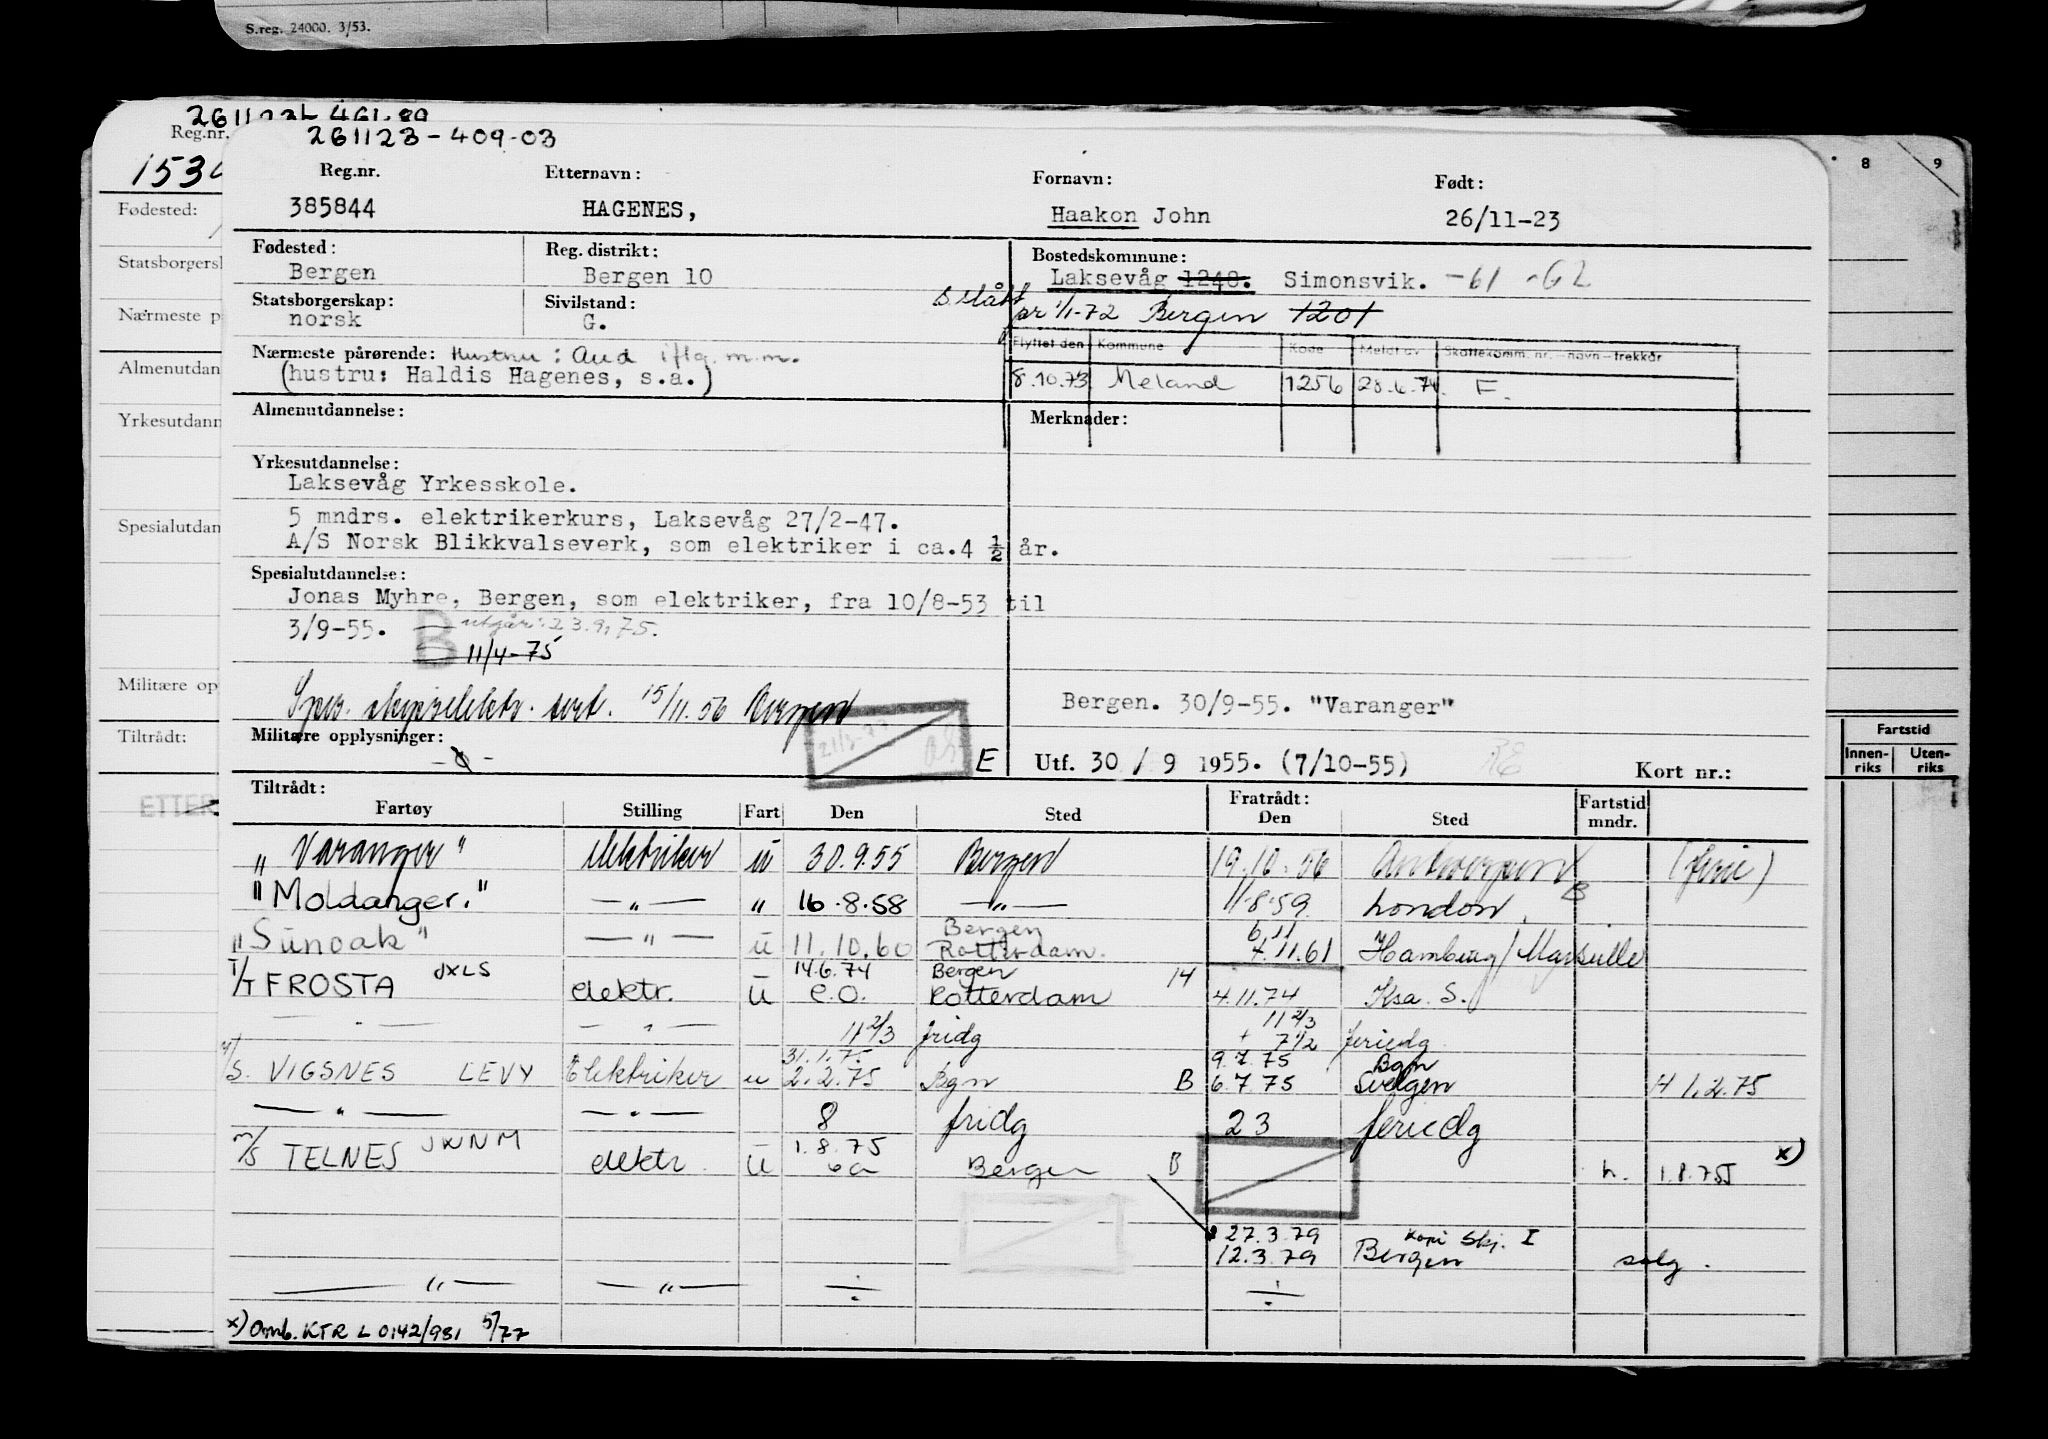 S.reg. 24000. 3/53.
Reg.nr.
Fødested:
Almenutdan
Yrkesutdann
Spesialutdan
Militære op
Tiltrådt:
8 9
Fartstid
Innen-riks Uten-riks
261123-409-03
Reg.nr. Etternavn: Fornavn: Født:
385844 HAGENES, Haakon John 26/11-23
Fødested: Reg. distrikt: Bostedskommune:
Bergen Bergen 10 Laksevåg 1248. Simonsvik. -61 -62
Statsborgerskap: Sivilstand:
norsk G. pr 1/1-72 Bergen 1201
Nærmeste pårørende: Hustru: Aud iflg. m.m.
(hustru: Haldis Hagenes, s.a.)
Flyttet den Kommune Kode Meldt av Skattekomm. nr. - navn - trekkår
8.10.73 Meland 1256 28.6.74. F.
Almenutdannelse: Merknader:
Yrkesutdannelse:
Laksevåg Yrkesskole.
5 mndrs. elektrikerkurs, Laksevåg 27/2-47.
A/S Norsk Blikkvalseverk, som elektriker i ca.4 ½ år.
Spesialutdannelse:
Jonas Myhre, Bergen, som elektriker, fra 10/8-53 til
3/9-55. B utgår: 23.9.75.
11/4-75
Spes. skipselektr. sert. 15/11.56 Bergen
Bergen. 30/9-55. "Varanger"
Militære opplysninger:
E Utf. 30/9 1955. (7/10-55) Kort nr.:
Tiltrådt: Fratrådt: Fartstid mndr.
Fartøy Stilling Fart Den Sted Den Sted
"Varanger" elektriker u 30.9.55 Bergen 19.10.56 Antwerpen (ferie)
"Moldanger." — " — " 16.8.58 — " — 11.8.59 London. B
"Sunoak" — " — u 11.10.60 Bergen Rotterdam. 6.11 4.11.61 Hamburg/Marseille
T/T FROSTA JXLS elektr. u 14.6.74 e.o. Bergen Rotterdam 14 4.11.74 Ksa. S.
— " — — " — 11 2/3 fridg 11 2/3 + 7 1/2 feriedg.
M/S. VIGSNES LEVY Elektriker u 31.1.75 2.2.75 Bgn B 9.7.75 6.7.75 Bgn Svelgen H 1.2.75
— " — — " — 8 fridg 23 feriedg
M/S TELNES JWNM elektr. u 1.8.75 Bergen B h. 1.8.75 x)
27.3.79 Kopi Skj. I
12.3.79 Bergen salg.
— " — — " — ÷ ÷
x) Omb. KTR L 0142/931 5/77